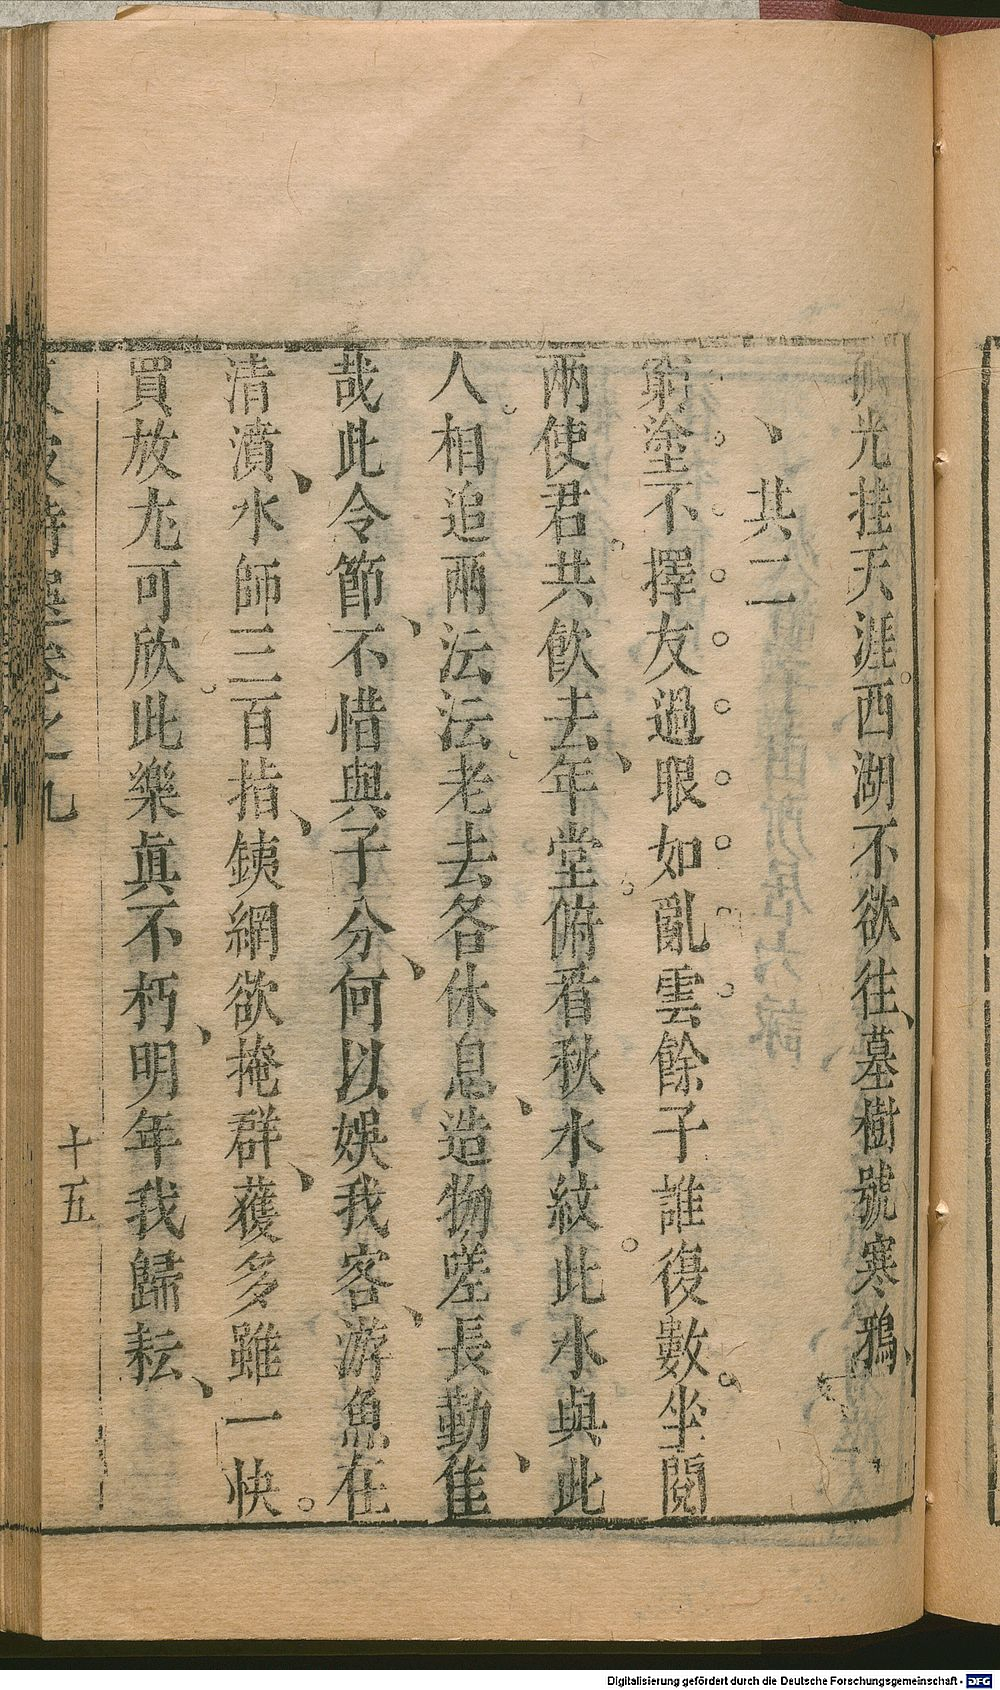 光挂天涯西湖不欲往墓樹號寒鴉
共二
窮塗不擇友過眼如亂雲餘子誰復數坐閱
兩使君共飲去年堂俯看秋水紋此水與此
人相追兩沄沄老去各休息造物嗟長勤佳
哉此令節不惜與子分何以娛我客游魚在
清濆水師三百指鐵網欲掩群獲多雖一快
買放尤可欣此樂眞不朽明年我歸耘
東坡詩選卷之九
十五
Digitalisierung gefördert durch die Deutsche Forschungsgemeinschaft - DFG